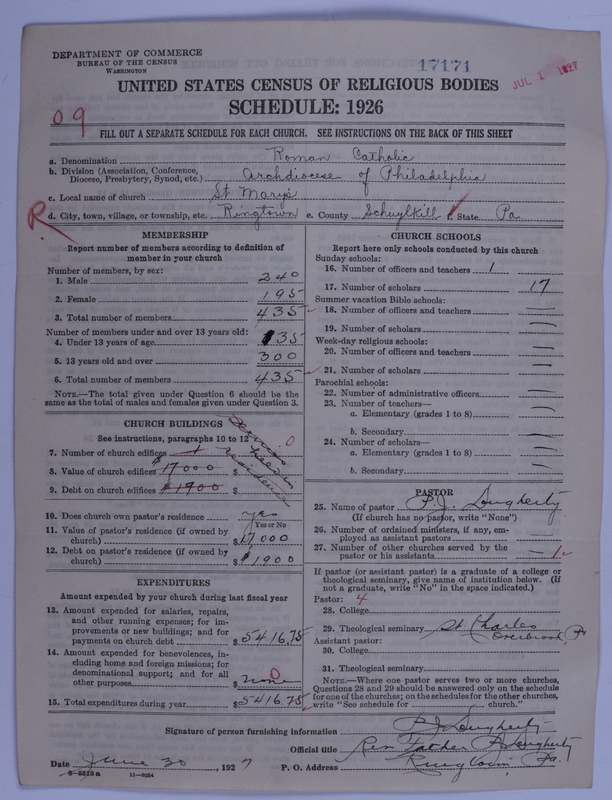 DEPARTMENT OF COMMERCE
BUREAU OF THE CENSUS
WASHINGTON
17171
JUL 1 1927
UNITED STATES CENSUS OF RELIGIOUS BODIES
SCHEDULE: 1926
09
FILL OUT A SEPARATE SCHEDULE FOR EACH CHURCH. SEE INSTRUCTIONS ON THE BACK OF THIS SHEET
a. Denomination Roman Catholic
b. Division (Association, Conference, Diocese, Presbytery, Synod, etc.) Archdiocese of Philadelphia
c. Local name of church St Marys
R
d. City, town, village, or township, etc. Ringtown e. County Schuylkill f. State Pa
MEMBERSHIP
Report number of members according to definition of
member in your church
Number of members, by sex:
1. Male 240
2. Female 195
3. Total number of members 435
Number of members under and over 13 years old:
4. Under 13 years of age 135
5. 13 years old and over 300
6. Total number of members 435
NOTE.—The total given under Question 6 should be
same as the total of males and females given under Question 3.
CHURCH BUILDINGS
See instructions, paragraphs 10 to 12
7. Number of church edifices 1 0
8. Value of church edifices $17000 $
9. Debt on church edifices $1900 $
residence
10. Does church own pastor's residence yes
Yes or No
11. Value of pastor's residence (if owned by
church) $17,000
12. Debt on pastor's residence (if owned by
church) $1900
EXPENDITURES
Amount expended by your church during last fiscal year
13. Amount expended for salaries, repairs,
and other running expenses; for im-
provements or new buildings; and for
payments on church debt $5416.75
14. Amount expended for benevolences, in-
cluding home and foreign missions; for
denominational support; and for all
other purposes $none 0
15. Total expenditures during year $5416.75
CHURCH SCHOOLS
Report here only schools conducted by this church
Sunday schools:
16. Number of officers and teachers 1
17. Number of scholars 17
Summer vacation Bible schools:
18. Number of officers and teachers —
19. Number of scholars —
Week-day religious schools:
20. Number of officers and teachers —
21. Number of scholars —
Parochial schools:
22. Number of administrative officers —
23. Number of teachers—
a. Elementary (grades 1 to 8) —
b. Secondary —
24. Number of scholars—
a. Elementary (grades 1 to 8) —
b. Secondary —
PASTOR
25. Name of pastor P.J. Dougherty
(If church has no pastor, write "None")
26. Number of ordained ministers, if any, em-
ployed as assistant pastors
27. Number of other churches served by the
pastor or his assistants — 1
If pastor (or assistant pastor) is a graduate of a college or
theological seminary, give name of institution below. (If
not a graduate, write "No" in the space indicated.)
Pastor: 4
28. College
29. Theological seminary St Charles
Overbrook, Pa
Assistant pastor:
30. College
31. Theological seminary
NOTE.—Where one pastor serves two or more churches,
Questions 28 and 29 should be answered only on the schedule
for one of the churches; on the schedules for the other churches,
write "See schedule for church."
Signature of person furnishing information P.J. Dougherty
Official title Rev. Father P.J. Dougherty
Date June 30, 1927 P. O. Address Ringtown, Pa.
6-5516a 11-9024